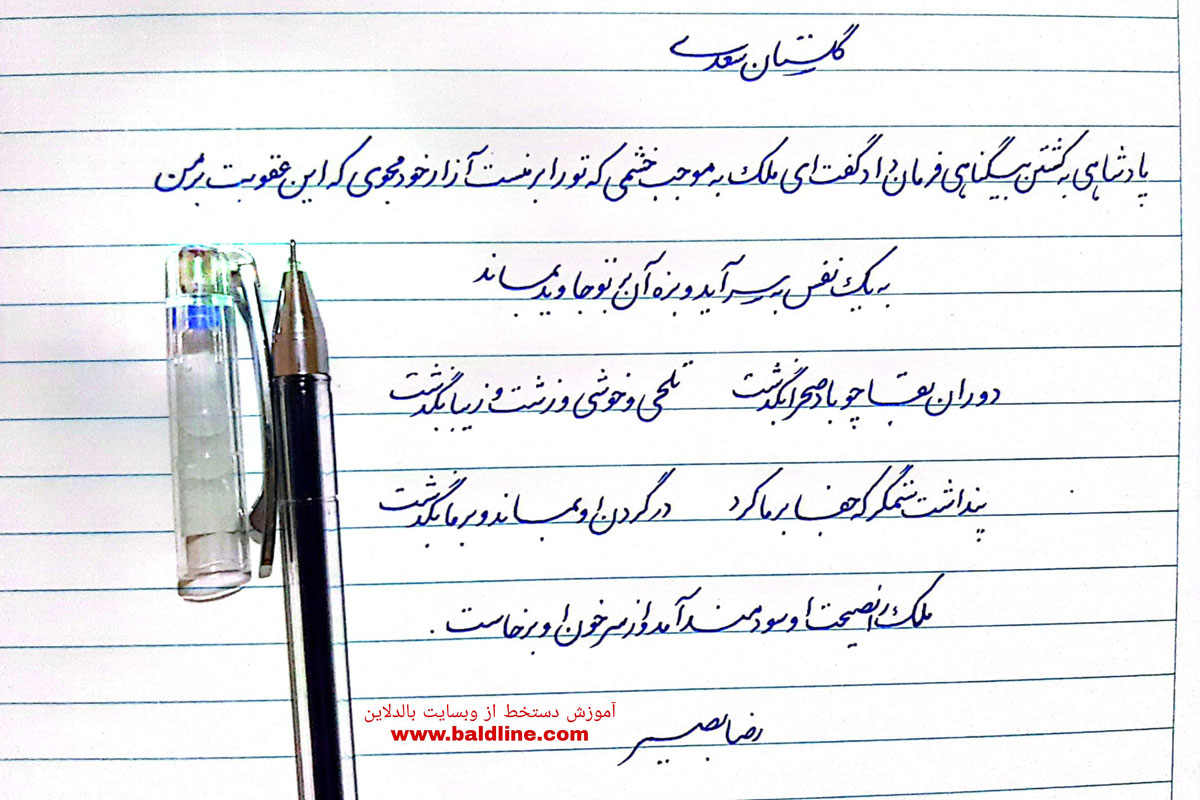 گلستان سعدی
پادشاهی به کشتن بیگناهی فرمان داد گفت ای ملک به موجب خشمی که تو را بر منست آزار خود مجوی که این عقوبت بر من
به یک نفس به سر آید و بزه آن بر تو جاوید بماند
دوران بقا چو باد صحرا بگذشت تلخی و خوشی و زشت و زیبا بگذشت
پنداشت ستمگر که جفا بر ما کرد در گردن او بماند و بر ما بگذشت
ملک را نصیحت او سودمند آمد و از سر خون او برخاست .
رضا بصیر
آموزش دستخط از وبسایت بالدلاین
www.baldline.com